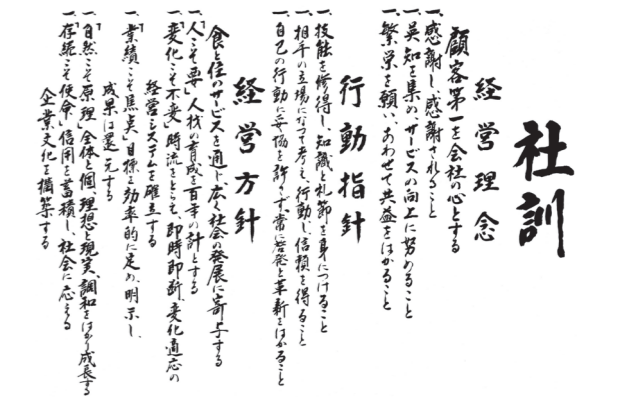 社訓
経営理念
顧客第一を会社の心とする
一、感謝し、感謝されること
一、英知を集め、サービスの向上に努めること
一、繁栄を願い、あわせて共益をはかること
行動指針
一、技能を修得し、知識と礼節を身につけること
一、相手の立場になって考え、行動し、信頼を得ること
一、自己の行動に妥協を許さず、常に啓発と革新をはかること
経営方針
食と住のサービスを通じ、広く社会の発展に寄与する
一、「人こそ要」人材の育成を百年の計とする
一、「変化こそ不変」時流をとらえ、即時即断、変化適応の
経営システムを確立する
一、「業績こそ焦点」目標を効率的に定め、明示し、
成果は還元する
一、「自然こそ原理」全体と個、理想と現実、調和をはかり成長する
一、「存続こそ使命」信用を蓄積し、社会に応える
企業文化を構築する